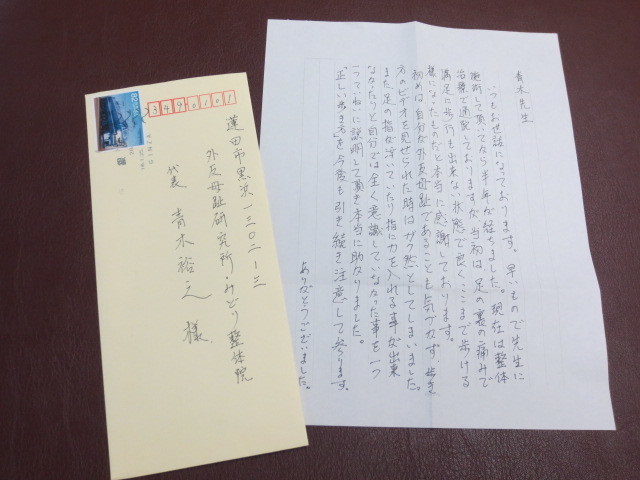 3490101
蓮田市黒浜一〇〇二-三
外反母趾研究所・みどり整体院
代表 青木裕之 様
青木先生
いつもお世話になっております。早いもので先生に
施術して頂いてから半年が経ちました。現在は整体
治療で通院しておりますが当初は足の裏の痛みで
満足に歩行も出来ない状態で良くここまで歩ける
様になったものだと本当に感謝しております。
初めは自分が外反母趾であることも気づかず歩き
方のビデオを見せられた時はガク然としてしまいました。
また足の指が浮いていたり指に力を入れる事が出来
なかったりと自分では全く意識していなかった事を一つ
一つていねいに説明して頂き本当に助かりました。
「正しい歩き方」を今後も引き続き注意して参ります。
ありがとうございました。